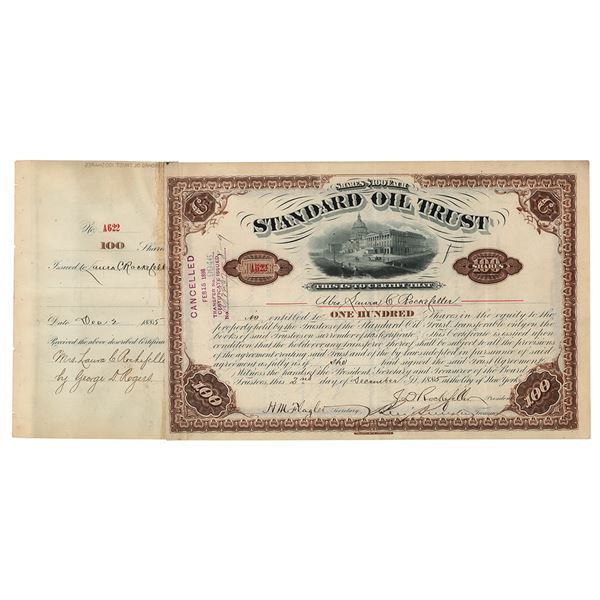 No. A622
100 Shares
Issued to Laura C Rockefeller
Date Dec 2 1885
Received the above described Certificate
Mrs Laura C Rockefeller
by George D. Rogers
CANCELLED
FEB 15 1886
TRANSFER No.
CERTIFICATE ISSUED
No.
SHARES $100 EACH
STANDARD OIL TRUST
A622
100
SHARES
THIS IS TO CERTIFY THAT
Mrs Laura C Rockefeller
is entitled to ONE HUNDRED Shares in the equity to the
property held by the Trustees of the Standard Oil Trust, transferable only on the
books of said Trustees on surrender of this Certificate. This Certificate is issued upon
condition that the holder or any transferee thereof shall be subject to all the provisions
of the agreement creating said Trust and of the by laws adopted in pursuance of said
agreement as fully as if she had signed the said Trust Agreement.
Witness the hands of the President, Secretary and Treasurer of the Board of
Trustees, this 2nd day of December A.D. 1885 at the City of New York.
J D Rockefeller President
H M Flagler Secretary
Treasurer
100
100